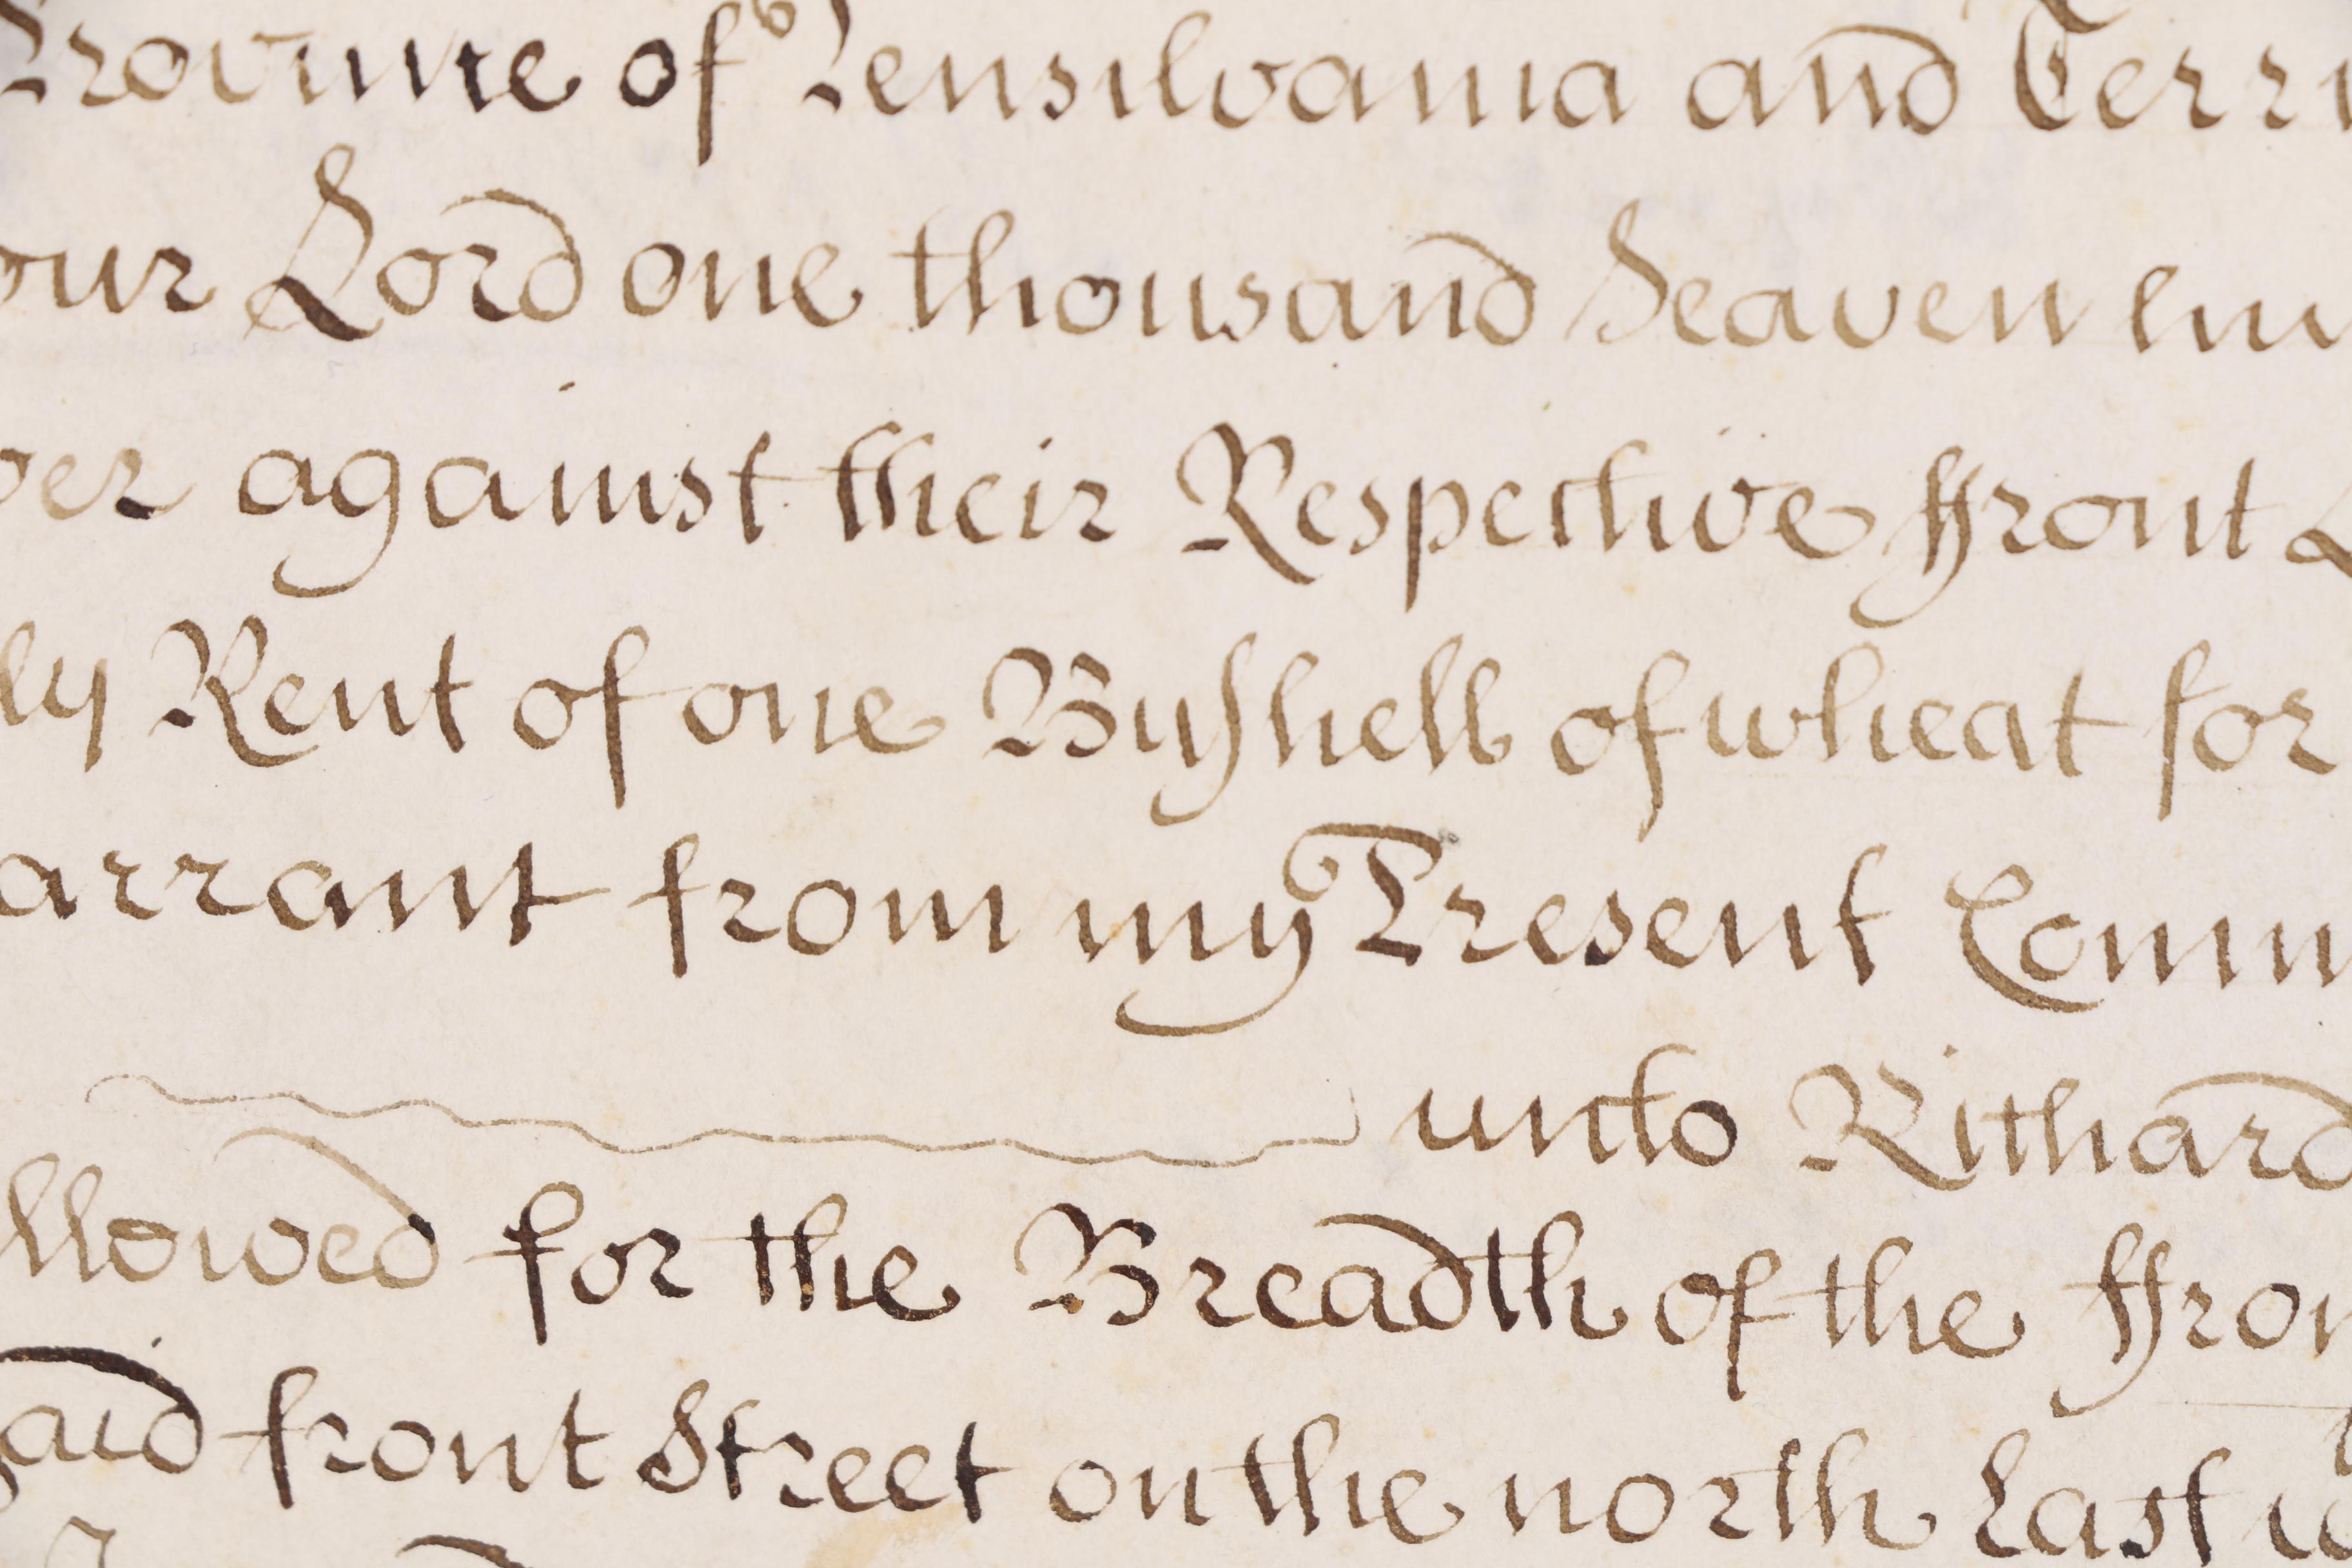 Province of Pensilvania and Terri
our Lord one thousand Seaven hu
ver against their Respective ffront L
ly Rent of one Bushell of wheat for
arrant from my Present Comm
unto Richard
llowed for the Breadth of the ffron
said front Street on the north East